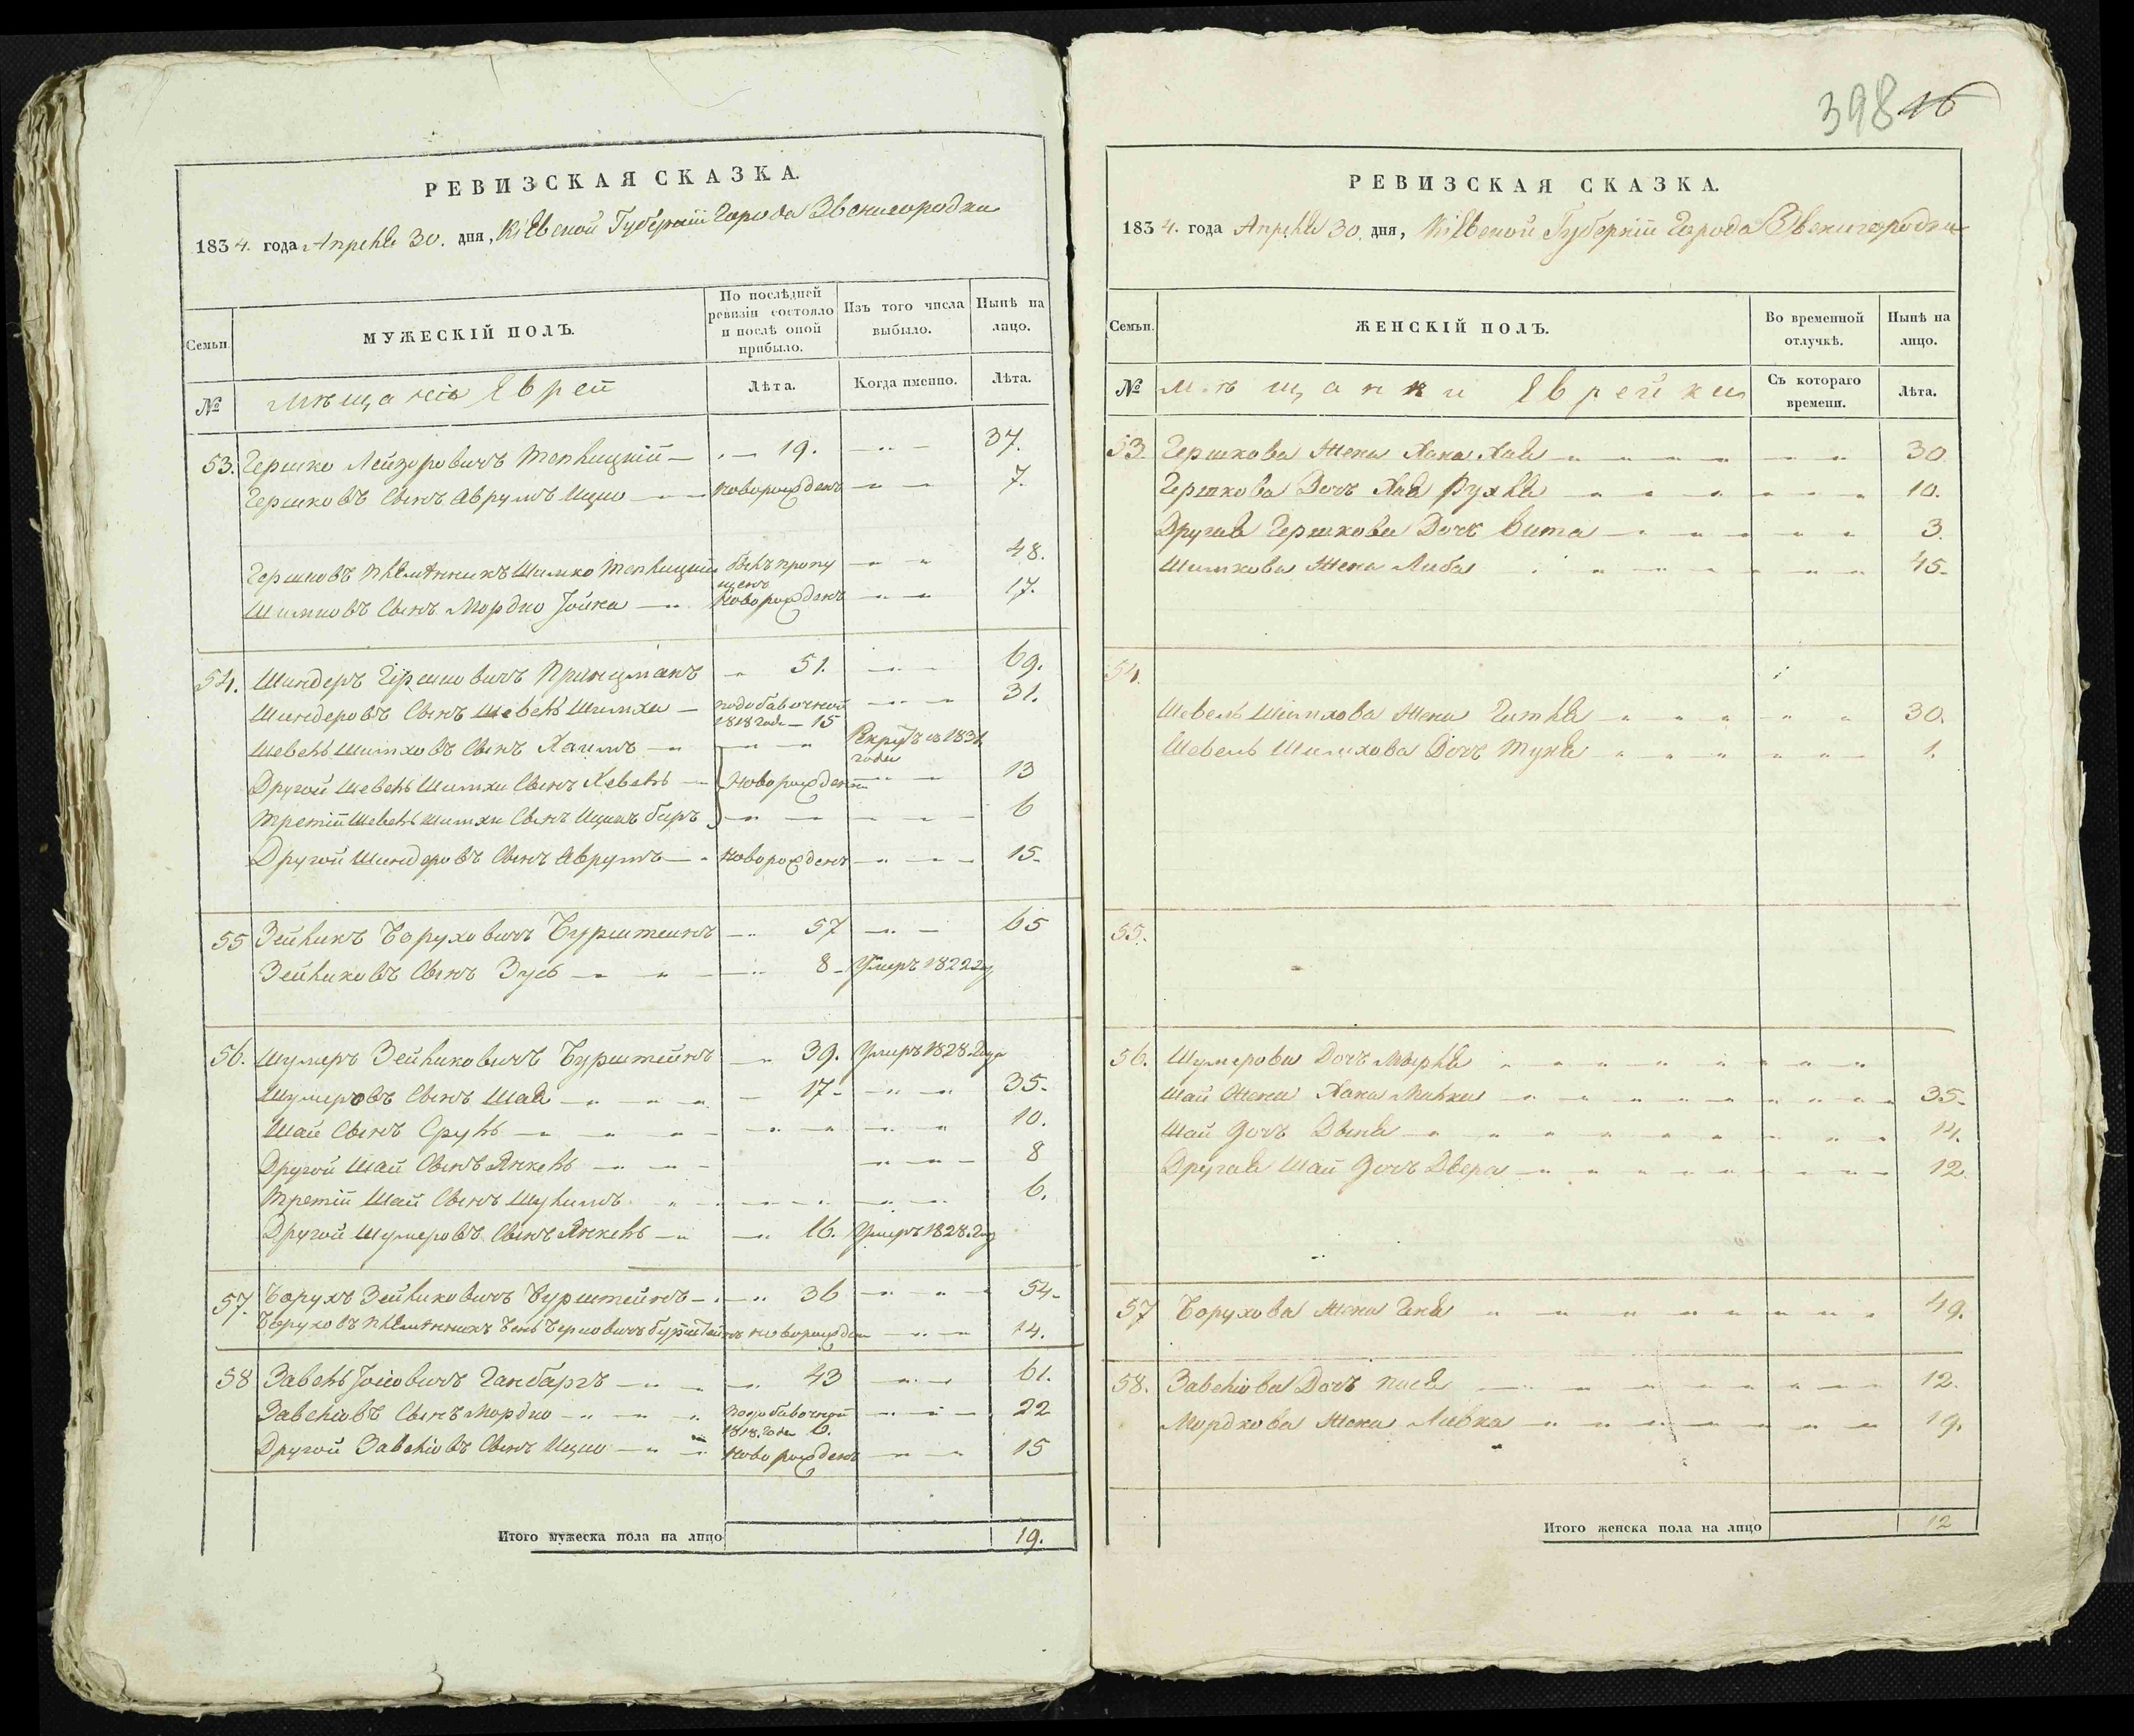 398 16
РЕВИЗСКАЯ СКАЗКА.
1834. года Апреля 30. дня, Кіевской Губерніи Города Звенигородки
Семьи.
МУЖЕСКІЙ ПОЛЪ.
По послѣдней ревизіи состояло и послѣ оной прибыло.
Изъ того числа выбыло.
Нынѣ на лицо.
№
Мѣщане Евреи
Лѣта.
Когда именно.
Лѣта.
53. Гершко Лейзоровичъ Теплицкій 19. 37.
Гершковъ Сынъ Аврумъ Ицко новорожденъ 7.
Гершковъ племянникъ Шимко Теплицкий былъ пропущенъ 48.
Шимковъ Сынъ Мордко Іойна Новорожденъ 17.
54. Шендеръ Гершковичъ Принцманъ 51. 69.
Шендеровъ Сынъ Шевель Шимха подобавочной 1818 года 15 31.
Шевель Шимховъ Сынъ Хаимъ Рекрутъ в 1831 года
Другой Шевель Шимхи Сынъ Новорожденни 13
Третій Шевель Шимхи Сынъ Ицикъ Беръ 6
Другой Шендеровъ Сынъ Аврумъ Новорожденъ 15.
55 Зейликъ Боруховичъ Бурштеинъ 57 65
Зейликовъ Сынъ Зусь 8 Умеръ 1822 го
56. Шумеръ Зейликовичъ Бурштейнъ 39. Умеръ 1828 года
Шумеровъ Сынъ Шая 17 35.
Шаи Сынъ Сруль 10.
Другой Шаи Сынъ Янкель 8
Третій Шаи Сынъ Шулимъ 6.
Другой Шумеровъ Сынъ Янкель 16. Умеръ 1828 Год
57. Борухъ Зейликовичъ Бурштейнъ 36 54.
Боруховъ племянникъ Бень Берковичъ Бурштейнъ новорожден 14.
58 Завель Іосіовичъ 43 61.
Завеліовъ Сынъ Мордко подобавочной 1818. года 6. 22
Другой Завеліовъ Сынъ Ицко Новорожденъ 15
Итого мужеска пола на лицо 19.
РЕВИЗСКАЯ СКАЗКА.
1834. года Апреля 30. дня, Кіевской Губерніи Города Звенигородки
Семьи.
ЖЕНСКІЙ ПОЛЪ.
Во временной отлучкѣ.
Нынѣ на лицо.
№
Мѣщанки Еврейки
Съ котораго времени.
Лѣта.
53 Гершкова Жена Хана Хая 30
Гершкова Дочь Хая Рухля 10.
Другая Гершкова Дочь Вита 3.
Шимкова Жена Либа 45.
54.
Шевель Шимхова Жена Гитля 30.
Шевель Шимхова Дочь 1.
55.
56. Шумерова Дочь Мерля
Шаи Жена Хана Малка 35.
Шаи Дочь Двыня 14.
Другая Шаи Дочь Двера 12.
57 Борухова Жена 49.
58. Завеліова Дочь Песя 12.
Мордкова Жена Ривка 19.
Итого женска пола на лицо 12